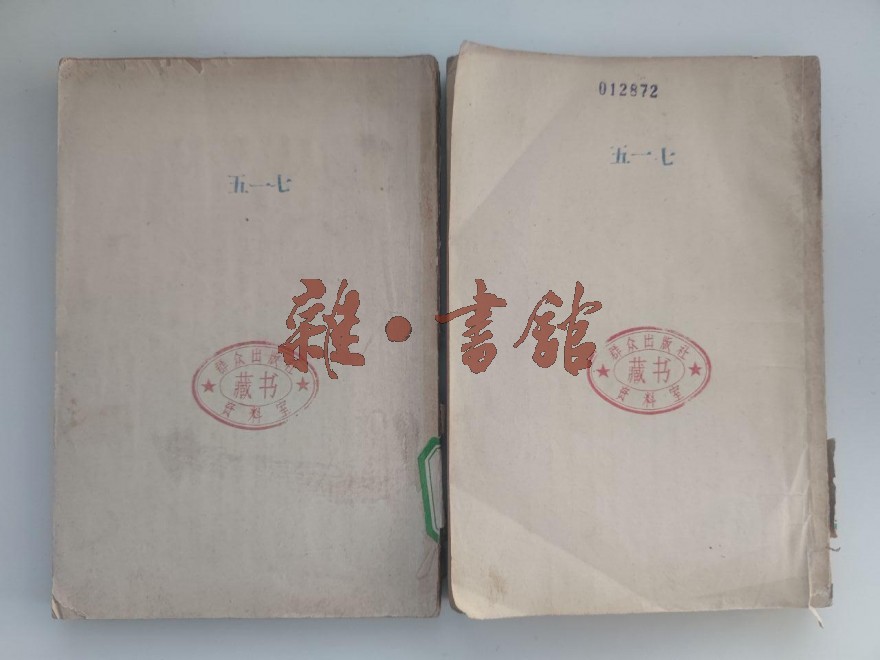 012872
五一七
五一七
雜·書舘
群众出版社
藏书
资料室
群众出版社
藏书
资料室